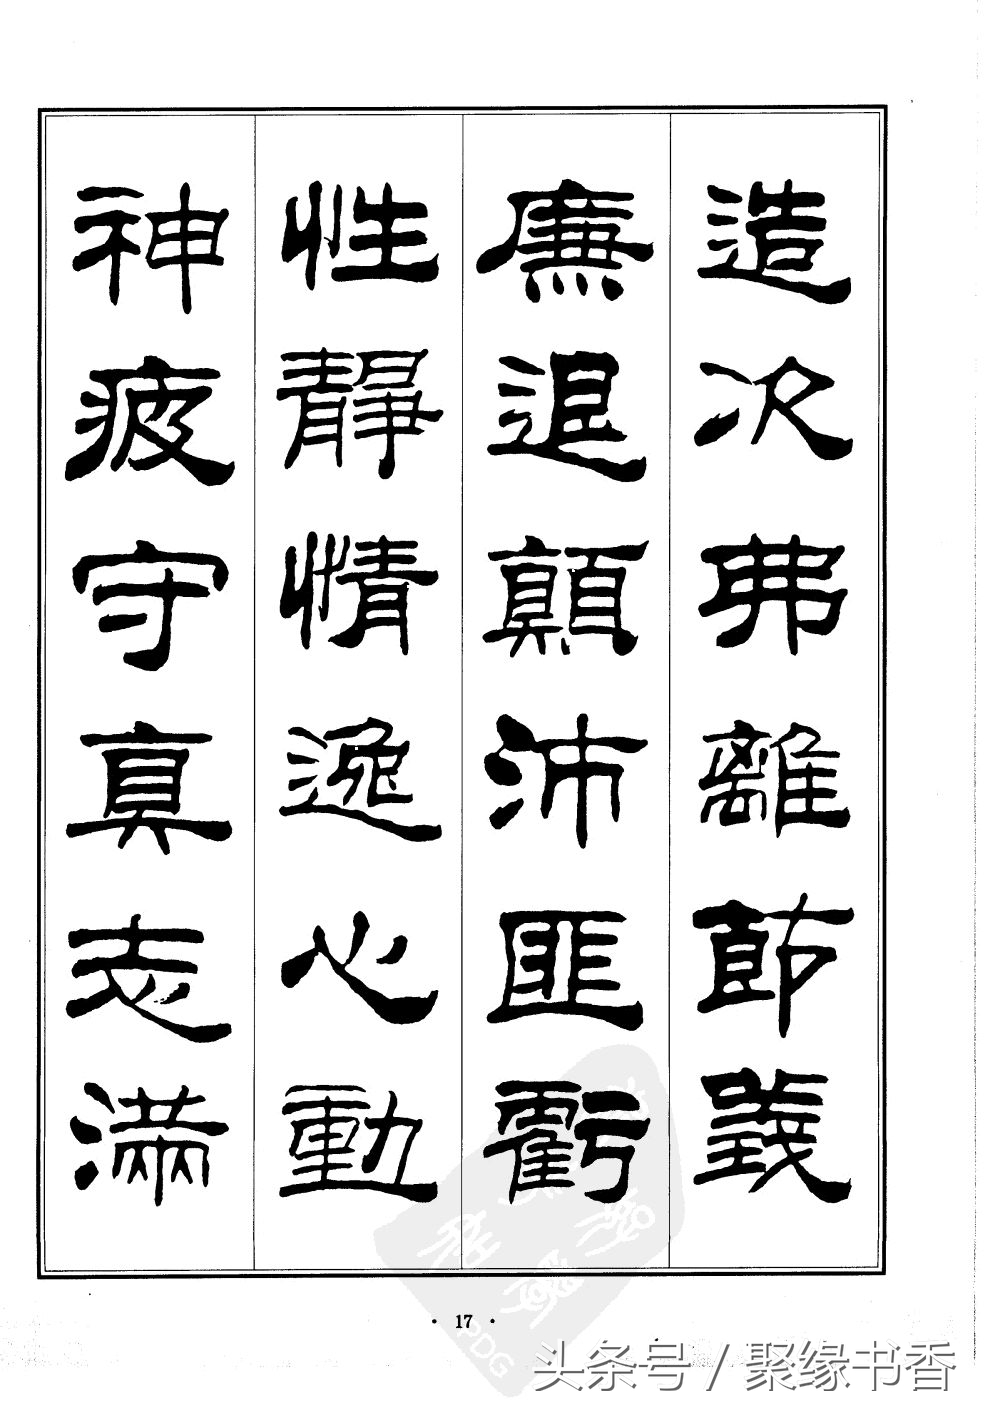 造次弗離節義
廉退顛沛匪虧
性靜情逸心動
神疲守真志滿
· 17 ·
PDG
头条号 / 聚缘书香